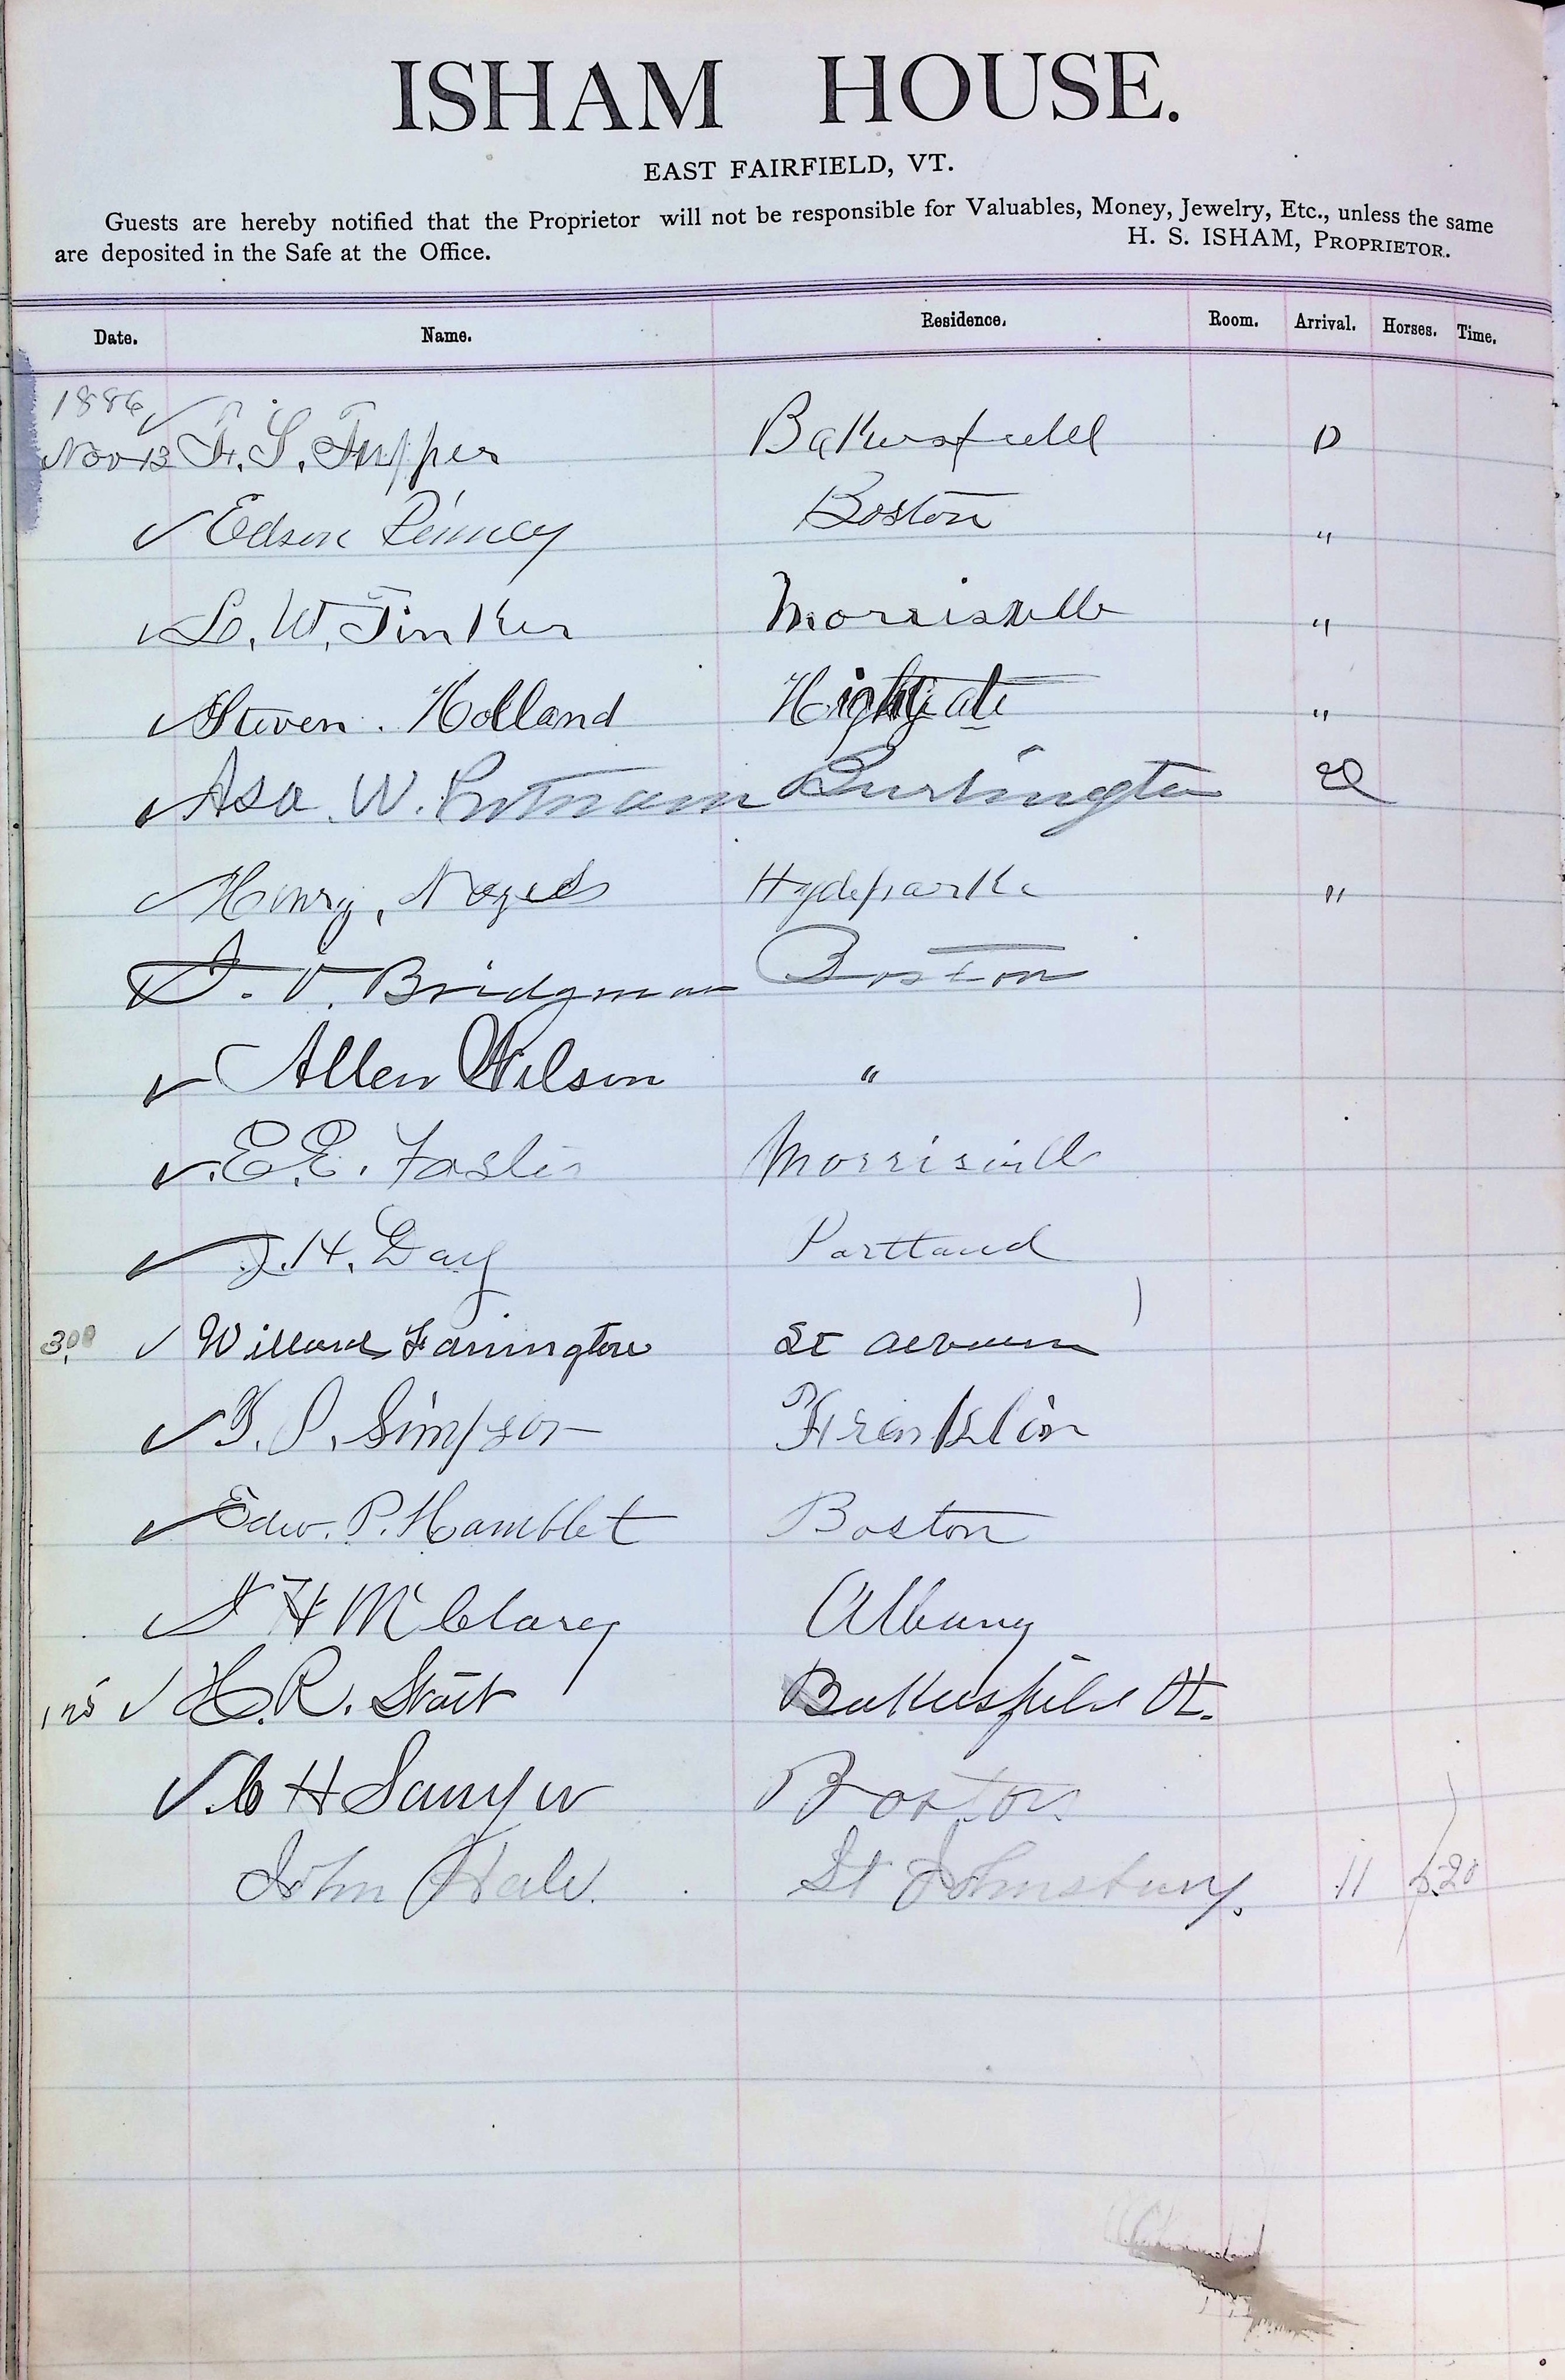 ISHAM HOUSE.
EAST FAIRFIELD, VT.
Guests are hereby notified that the Proprietor will not be responsible for Valuables, Money, Jewelry, Etc., unless the same
are deposited in the Safe at the Office.
H. S. ISHAM, PROPRIETOR.
Date. Name. Residence. Room. Arrival. Horses. Time.
1886
Nov 13 F. S. Tupper Bakersfield D
Edson Boston "
W. Tinker Morrisville "
Steven. Holland Highgate "
Asa W. Putnam Burlington
Henry, Hydepark "
V. Bridgman Boston
Allen Wilson "
E. E. Foster Morrisville
J. H. Day Portland
3.00 Willard Farrington St Albans
P. Simpson Franklin
Edw. P. Hamblet Boston
H McClary Albany
1 25 H. R. Start Bakersfield Vt.
C H Sawyer Boston
John Hale. St Johnsbury. 11